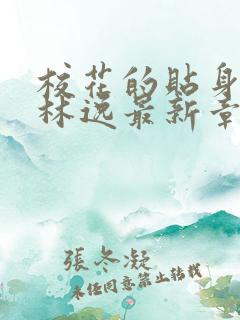 校花的貼身
林逸最新章
張冬凝
未經同意禁止轉載